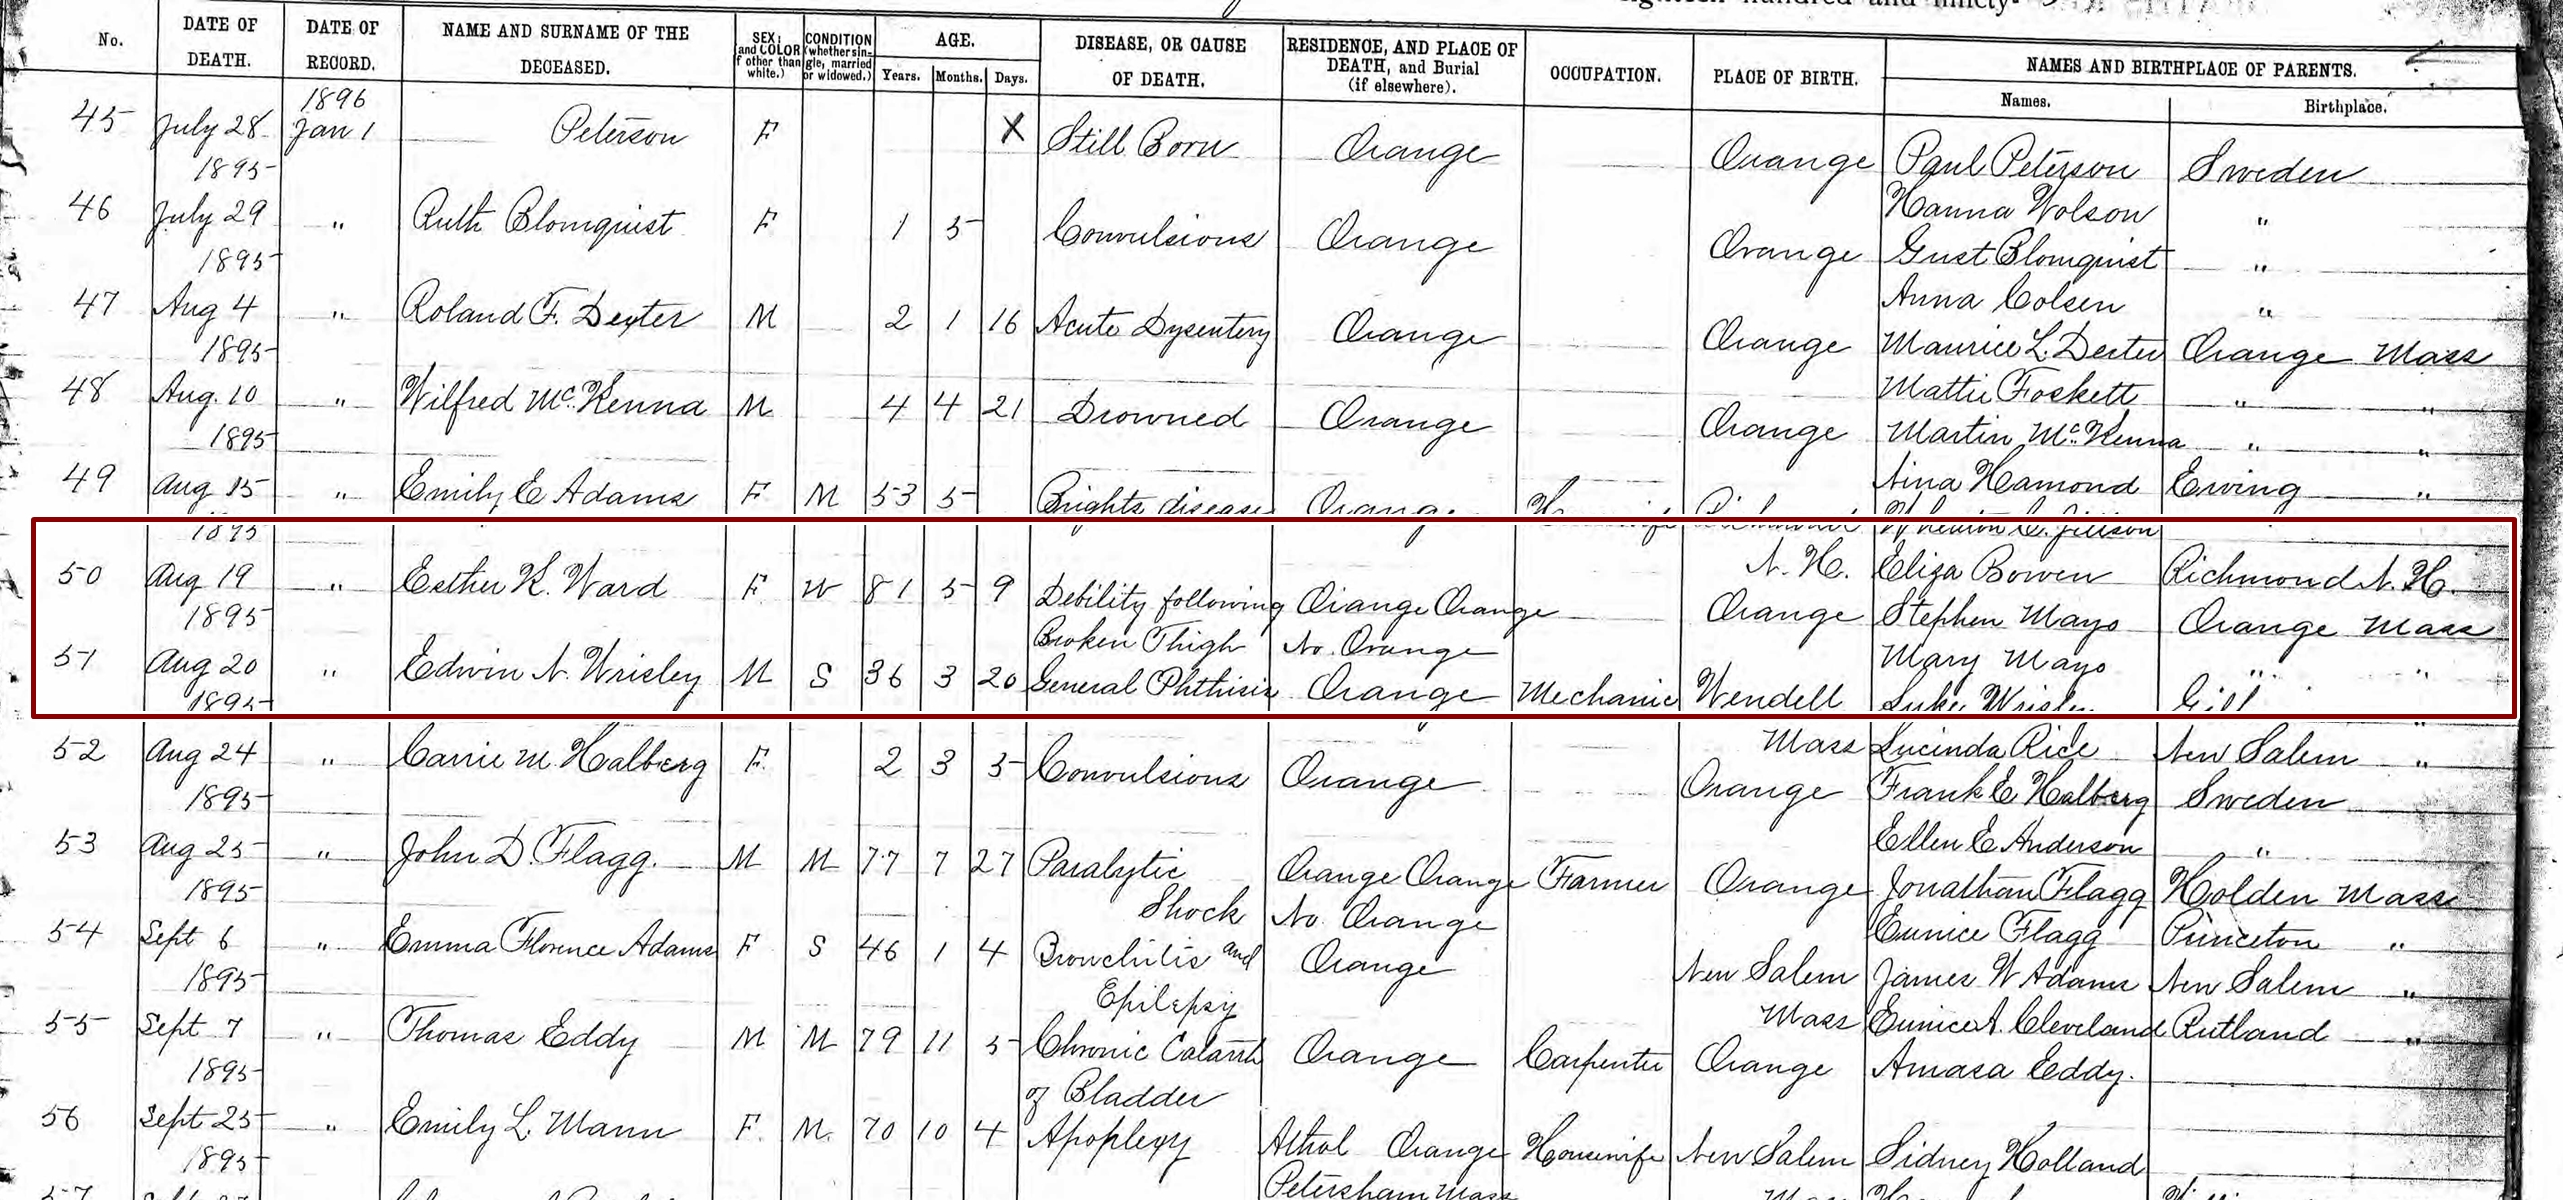 eighteen hundred and ninety-
No. DATE OF DEATH. DATE OF RECORD. NAME AND SURNAME OF THE DECEASED. SEX; and COLOR if other than white.) CONDITION (whether single, married or widowed.) AGE. Years. Months. Days. DISEASE, OR CAUSE OF DEATH. RESIDENCE, AND PLACE OF DEATH, and Burial (if elsewhere). OCCUPATION. PLACE OF BIRTH. NAMES AND BIRTHPLACE OF PARENTS. Names. Birthplace.
1896
45 July 28 Jan 1 Peterson F X Still Born Orange Orange Paul Peterson Sweden
1895 Hanna Wolson "
46 July 29 " Ruth Blomquist F 1 5 Convulsions Orange Orange Gust Blomquist "
1895 Anna Colsen "
47 Aug 4 " Roland F. Dexter M 2 1 16 Acute Dysentery Orange Orange Maurice L. Dexter Orange Mass
1895 Mattie Foskett " "
48 Aug. 10 " Wilfred McKenna M 4 4 21 Drowned Orange Orange Martin McKenna " "
1895 Nina Hamond Erving "
49 Aug 15 " Emily E Adams F M 53 5 Brights disease Orange
1895 N. H. Eliza Bowen Richmond N. H.
50 Aug 19 " Esther K. Ward F W 81 5 9 Debility following Orange Orange Orange Stephen Mayo Orange Mass
1895 Broken Thigh No. Orange Mary Mayo " "
51 Aug 20 " Edwin N. Wrisley M S 36 3 20 General Phthisis Orange Mechanic Wendell Luke Wrisley Gill
1895 Mass Lucinda Rice New Salem "
52 Aug 24 " Carrie M. Halberg F. 2 3 5 Convulsions Orange Orange Frank E Halberg Sweden
1895 Ellen E Anderson "
53 Aug 25 " John D. Flagg. M M 77 7 27 Paralytic Orange Orange Farmer Orange Jonathan Flagg Holden Mass
1895 Shock No. Orange Eunice Flagg Princeton "
54 Sept 6 " Emma Florence Adams F S 46 1 4 Bronchitis and Orange New Salem James W Adams New Salem "
1895 Epilepsy Mass Eunice A. Cleveland Rutland "
55 Sept 7 " Thomas Eddy M M 79 11 5 Chronic Catarrh Orange Carpenter Orange Amasa Eddy.
1895 of Bladder
56 Sept 25 " Emily L. Mann F. M. 70 10 4 Apoplexy Athol Orange Housewife New Salem Sidney Holland
1895 Petersham Mass
57